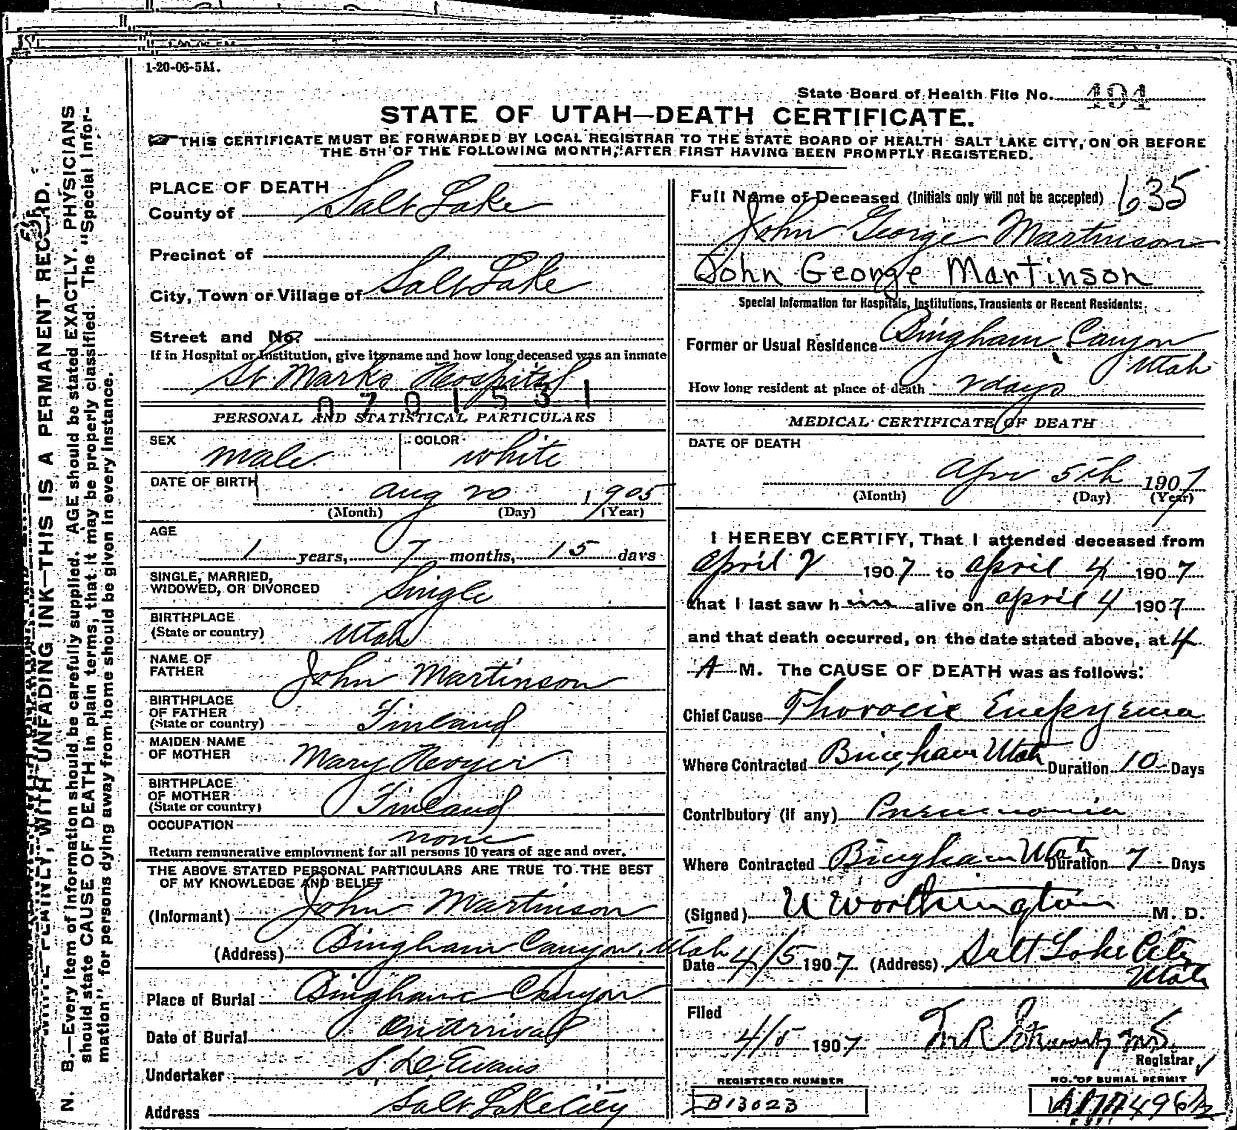 1-20-06-5M.
State Board of Health File No. 494
STATE OF UTAH—DEATH CERTIFICATE.
THIS CERTIFICATE MUST BE FORWARDED BY LOCAL REGISTRAR TO THE STATE BOARD OF HEALTH SALT LAKE CITY, ON OR BEFORE
THE 5TH OF THE FOLLOWING MONTH, AFTER FIRST HAVING BEEN PROMPTLY REGISTERED.
WRITE PLAINLY, WITH UNFADING INK—THIS IS A PERMANENT RECORD.
N. B.—Every item of information should be carefully supplied. AGE should be stated EXACTLY. PHYSICIANS
should state CAUSE OF DEATH in plain terms, that it may be properly classified. The "Special Infor-
mation" for persons dying away from home should be given in every instance.
PLACE OF DEATH
County of Salt Lake
Precinct of
City, Town or Village of Salt Lake
Street and No.
If in Hospital or Institution, give its name and how long deceased was an inmate
St Marks Hospital
0701531
PERSONAL AND STATISTICAL PARTICULARS
SEX male COLOR white
DATE OF BIRTH Aug 20 1905
(Month) (Day) (Year)
AGE
1 years, 7 months, 15 days
SINGLE, MARRIED,
WIDOWED, OR DIVORCED Single
BIRTHPLACE
(State or country) Utah
NAME OF
FATHER John Martinson
BIRTHPLACE
OF FATHER
(State or country) Finland
MAIDEN NAME
OF MOTHER Mary
BIRTHPLACE
OF MOTHER
(State or country) Finland
OCCUPATION none
Return remunerative employment for all persons 10 years of age and over.
THE ABOVE STATED PERSONAL PARTICULARS ARE TRUE TO THE BEST
OF MY KNOWLEDGE AND BELIEF
(Informant) John Martinson
(Address) Bingham Canyon, Utah
Place of Burial Bingham Canyon
Date of Burial On arrival
Undertaker S D Evans
Address Salt Lake City
Full Name of Deceased (Initials only will not be accepted) 635
John George Martinson
John George Martinson
Special Information for Hospitals, Institutions, Transients or Recent Residents:
Former or Usual Residence Bingham Canyon
Utah
How long resident at place of death 2 days
MEDICAL CERTIFICATE OF DEATH
DATE OF DEATH
Apr 5th 1907
(Month) (Day) (Year)
I HEREBY CERTIFY, That I attended deceased from
April 2 1907 to April 4 1907
that I last saw him alive on April 4 1907
and that death occurred, on the date stated above, at 4
A M. The CAUSE OF DEATH was as follows:
Chief Cause Thoracic Empyema
Where Contracted Bingham Utah Duration 10 Days
Contributory (If any) Pneumonia
Where Contracted Bingham Utah Duration 7 Days
(Signed) U Worthington M. D.
Date 4/5 1907 (Address) Salt Lake City
Utah
Filed
4/5 1907
Registrar
REGISTERED NUMBER
B13023
NO. OF BURIAL PERMIT